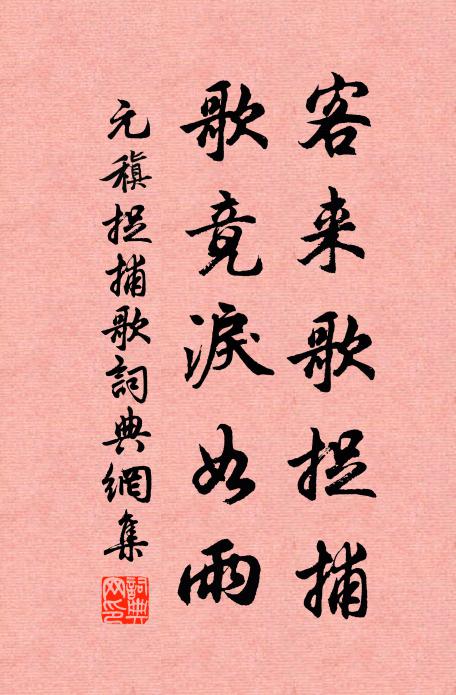 客来歌捉捕
歌竟淚如雨
元稹捉捕歌詞典網集
詞典網印